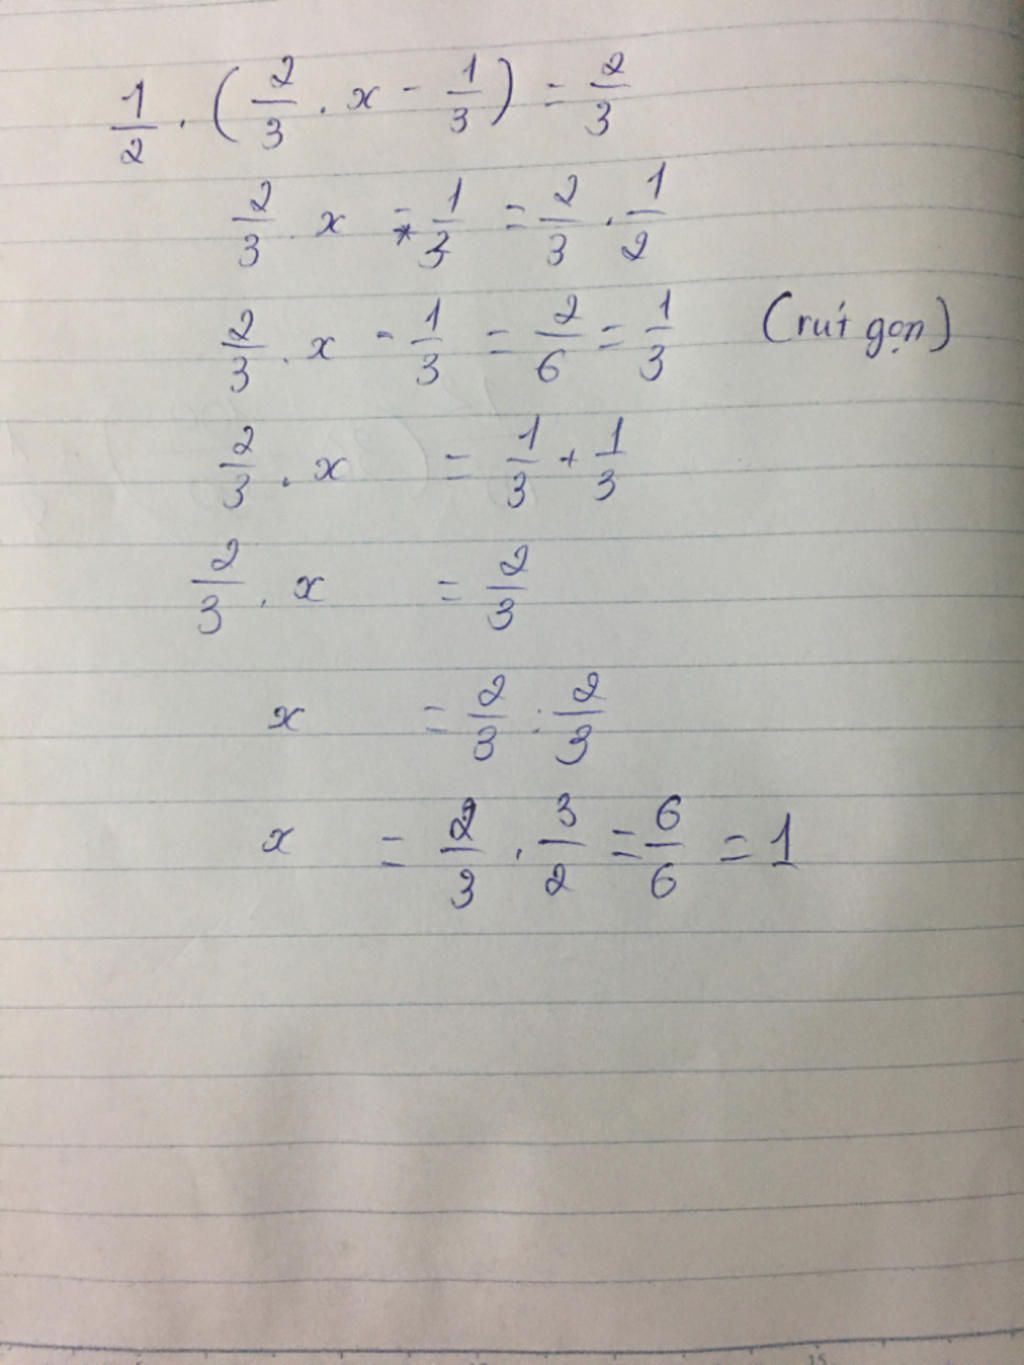 1/2 . (2/3 . x - 1/3) = 2/3
2/3 . x - 1/3 = 2/3 . 1/2
2/3 . x - 1/3 = 2/6 = 1/3 (rút gọn)
2/3 . x = 1/3 + 1/3
2/3 . x = 2/3
x = 2/3 : 2/3
x = 2/3 . 3/2 = 6/6 = 1